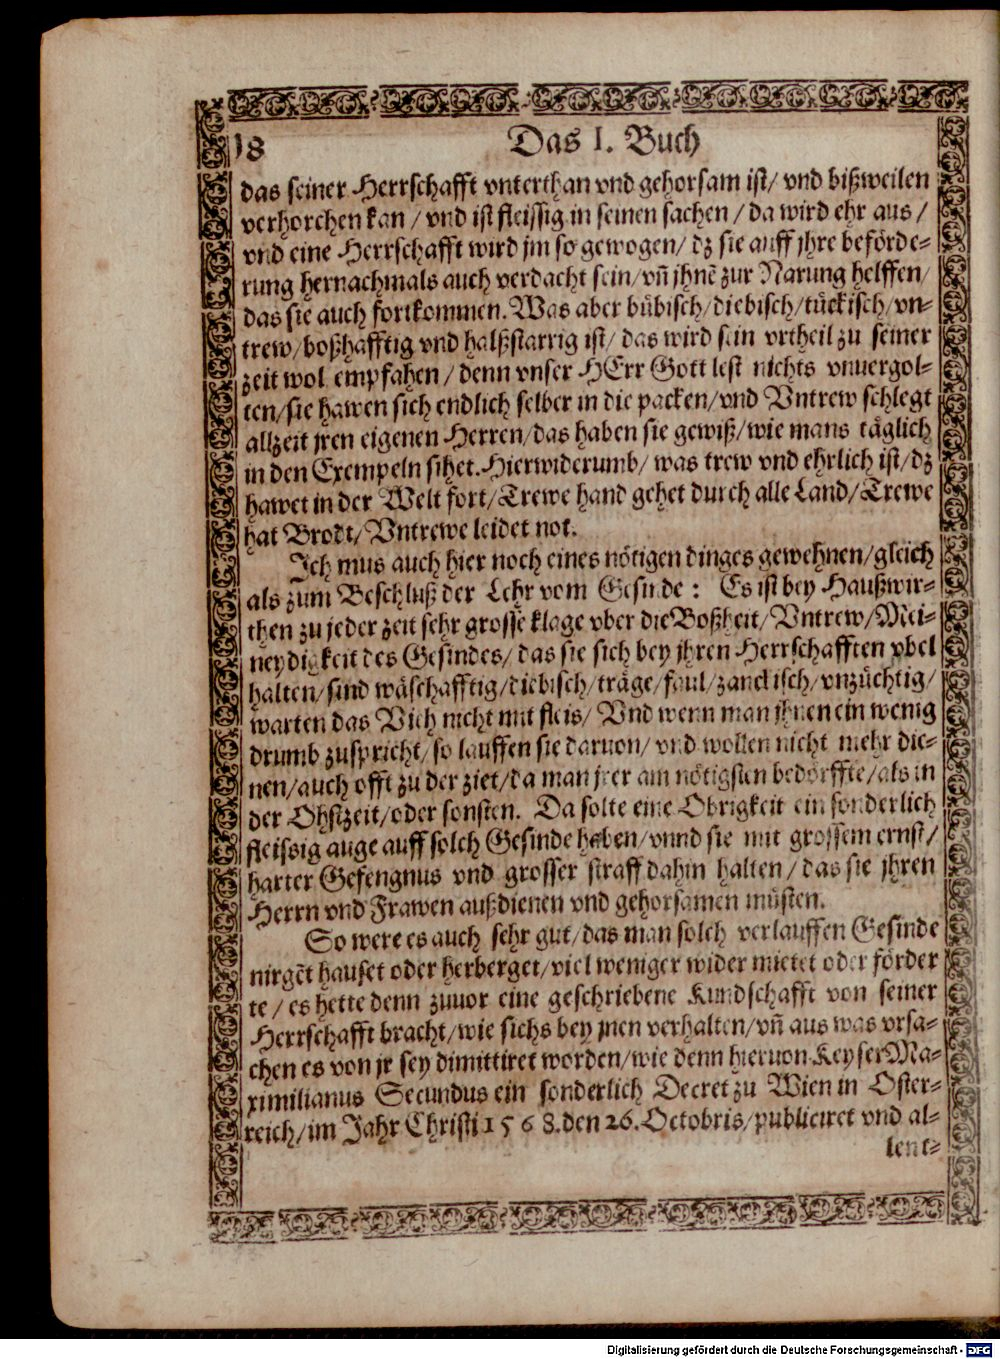 18 Das I. Buch
das seiner Herrschafft vnterthan vnd gehorsam ist/ vnd bißweilen
verhorchen kan / vnd ist fleissig in seinen sachen / da wird ehr aus /
vnd eine Herrschafft wird jm so gewogen/ dz sie auff jhre beförde-
rung hernachmals auch verdacht sein/ vñ jhnẽ zur Narung helffen/
das sie auch fortkommen. Was aber bübisch/ diebisch/ tückisch/ vn-
trew/ boßhafftig vnd halßstarrig ist/ das wird sein vrtheil zu seiner
zeit wol empfahen / denn vnser HErr Gott lest nichts vnuergol-
ten/ sie hawen sich endlich selber in die packen/ vnd Vntrew schlegt
allzeit jren eigenen Herren/ das haben sie gewiß/ wie mans täglich
in den Exempeln sihet. Hierwiderumb/ was trew vnd ehrlich ist/ dz
hawet in der Welt fort/ Trewe hand gehet durch alle Land/ Trewe
hat Brodt/ Vntrewe leidet not.
Ich mus auch hier noch eines nötigen dinges gewehnen/ gleich
als zum Beschluß der Lehr vom Gesinde : Es ist bey Haußwir-
then zu jeder zeit sehr grosse klage vber die Boßheit/ Vntrew/ Mei-
neydigkeit des Gesindes/ das sie sich bey jhren Herrschafften vbel
halten/ sind wäschafftig/ diebisch/ träge/ faul/ zanckisch/ vnzüchtig/
warten das Vieh nicht mit fleis/ Vnd wenn man jhnen ein wenig
drumb zuspricht/ so lauffen sie daruon/ vnd wollen nicht mehr die-
nen/ auch offt zu der ziet/ da man jrer am nötigsten bedörffte/ als in
der Ohstzeit/ oder sonsten. Da solte eine Obrigkeit ein sonderlich
fleissig auge auff solch Gesinde haben/ vnnd sie mit grossem ernst/
harter Gefengnus vnd grosser straff dahin halten / das sie jhren
Herrn vnd Frawen außdienen vnd gehorsamen müsten.
So were es auch sehr gut/ das man solch verlauffen Gesinde
nirgẽt hauset oder herberget/ viel weniger wider mietet oder förder
te / es hette denn zuuor eine geschriebene Kundschafft von seiner
Herrschafft bracht/ wie sichs bey jnen verhalten/ vñ aus was vrsa-
chen es von jr sey dimittiret worden/ wie denn hieruon Keyser Ma-
ximilianus Secundus ein sonderlich Decret zu Wien in Oster-
reich/ im Jahr Christi 1568. den 26. Octobris/ publiciret vnd al-
lent-
Digitalisierung gefördert durch die Deutsche Forschungsgemeinschaft - DFG